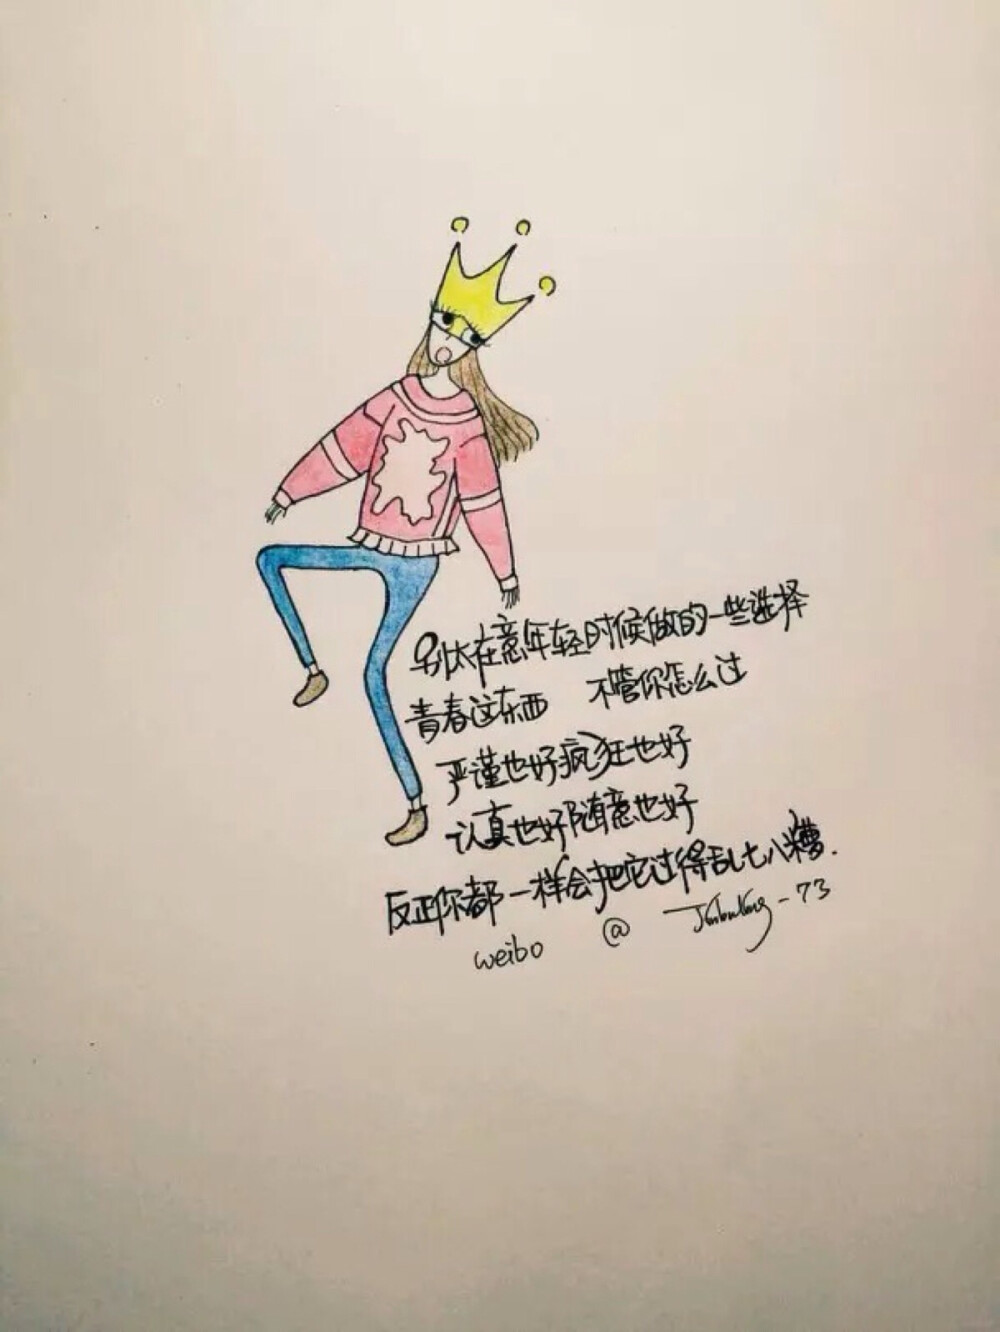 别太在意年轻时候做的一些选择
青春这东西 不管你怎么过
严谨也好疯狂也好
认真也好随意也好
反正你都一样会把它过得乱七八糟.
weibo @ -73